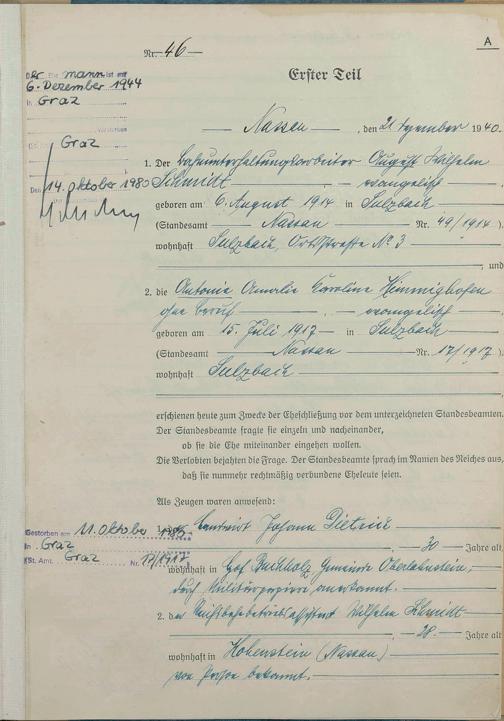 A
Nr. 46
Erster Teil
Der Ehemann ist am
6. Dezember 1944
in Graz
verstorben
Graz
Den 14. Oktober 1980
Nassau, den 21. Dezember 1940.
1. Der Bahnunterhaltungsarbeiter August Wilhelm
Schmidt, evangelisch
geboren am 6. August 1914 in Sulzbach
(Standesamt Nassau Nr. 49/1914)
wohnhaft Sulzbach, Ortsstraße No 3
, und
2. die Antonie Amalie Karoline Himmighofen
ohne Beruf, evangelisch
geboren am 15. Juli 1917 in Sulzbach
(Standesamt Nassau Nr. 17/1917)
wohnhaft Sulzbach
erschienen heute zum Zwecke der Eheschließung vor dem unterzeichneten Standesbeamten.
Der Standesbeamte fragte sie einzeln und nacheinander,
ob sie die Ehe miteinander eingehen wollen.
Die Verlobten bejahten die Frage. Der Standesbeamte sprach im Namen des Reiches aus,
daß sie nunmehr rechtmäßig verbundene Eheleute seien.
Als Zeugen waren anwesend:
Gestorben am 11. Oktober
in Graz
(St. Amt. Graz Nr. 17/1917
1. der Landwirt Johann
30 Jahre alt
wohnhaft in Hof Buchholz Gemeinde Oberlahnstein,
durch Militärpapiere anerkannt.
2. der Reichsbahnbetriebsassistent Wilhelm Schmidt
28 Jahre alt
wohnhaft in Hohenstein (Nassau)
von Person bekannt.